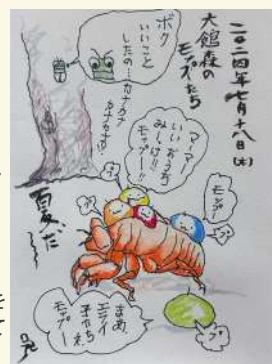 二〇二四年七月十八日(木)
大館森の
モップたち
ボク
いいこと
したの…カナカナ
カナカナ!?
マーマー
いいおうち
みっけ!!
モップー!!
モップ!
プ
プ
夏だ〜〜
まぁ、
エライ
子たち
モップー
プ